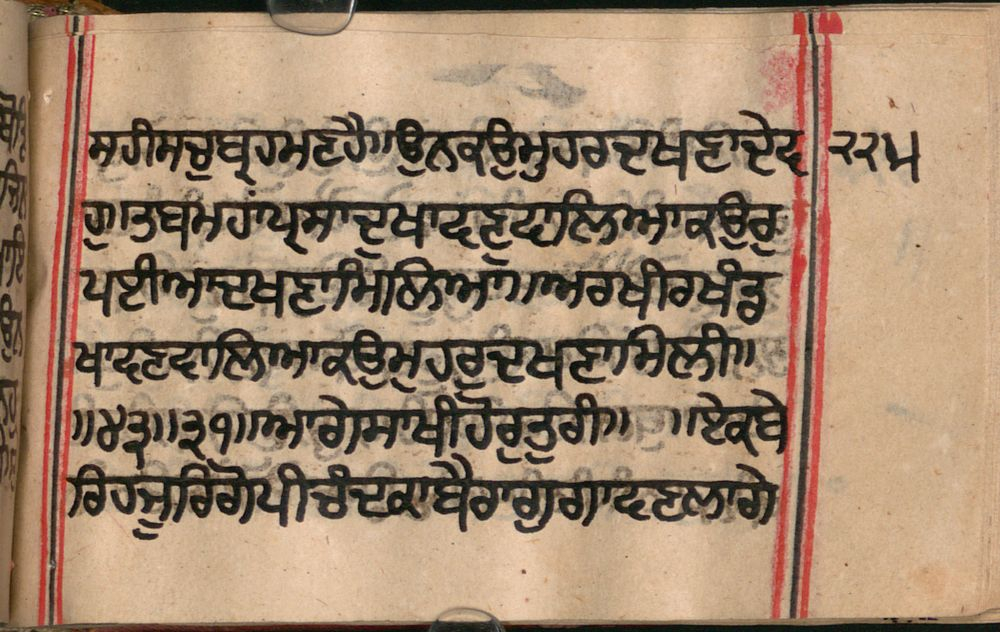 ਸਹੀਸਚੁਬ੍ਰਹਮਣਹੈ॥ਉਨਕਉਮੁਹਰਦਖਣਾਦੇਵ ੨੨੫
ਹੁ॥ਤਬਮਹਾਂਪ੍ਰਸਾਦੁਖਾਵਣਵਾਲਿਆਕਉਰੁ
ਪਈਆਦਖਣਾਮਿਲਿਆ॥ਅਰਖੀਰਖੰਡੁ
ਖਾਵਣਵਾਲਿਆਕਉਮੁਹਰੁਦਖਣਾਮਿਲੀ॥
॥੪੩॥੩੧॥ਆਗੇਸਾਖੀਹੋਰੁਤੁਰੀ॥ ॥ਏਕਬੇ
ਰਿਹਜੂਰਿਗੋਪੀਚੰਦਕਾਬੈਰਾਗੁਗਾਵਣਲਾਗੇ